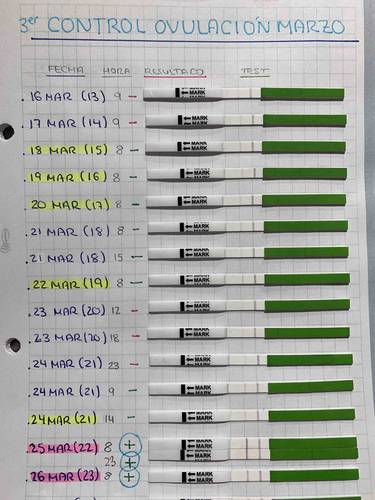 3er CONTROL OVULACIÓN MARZO
FECHA HORA RESULTADO TEST
. 16 MAR (13) 9 - ← MARK
. 17 MAR (14) 9 - ← MARK
. 18 MAR (15) 8 - ← MARK
. 19 MAR (16) 8 - ← MARK
. 20 MAR (17) 8 - ← MARK
. 21 MAR (18) 8 - ← MARK
. 21 MAR (18) 15 - ← MARK
. 22 MAR (19) 8 - ← MARK
. 23 MAR (20) 12 - ← MARK
. 23 MAR (20) 18 - ← MARK
. 24 MAR (21) 23 - ← MARK
. 24 MAR (21) 9 - ← MARK
. 24 MAR (21) 14 - ← MARK
. 25 MAR (22) 8 + ← MARK
23 + ← MARK
. 26 MAR (23) 8 + ← MARK